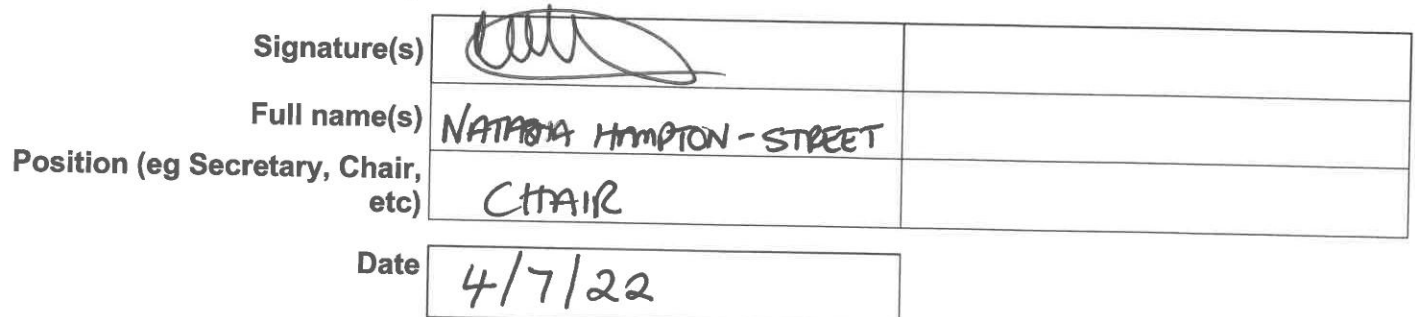 Signature(s)
Full name(s) NATASHA HAMPTON-STREET
Position (eg Secretary, Chair,
etc) CHAIR
Date 4/7/22